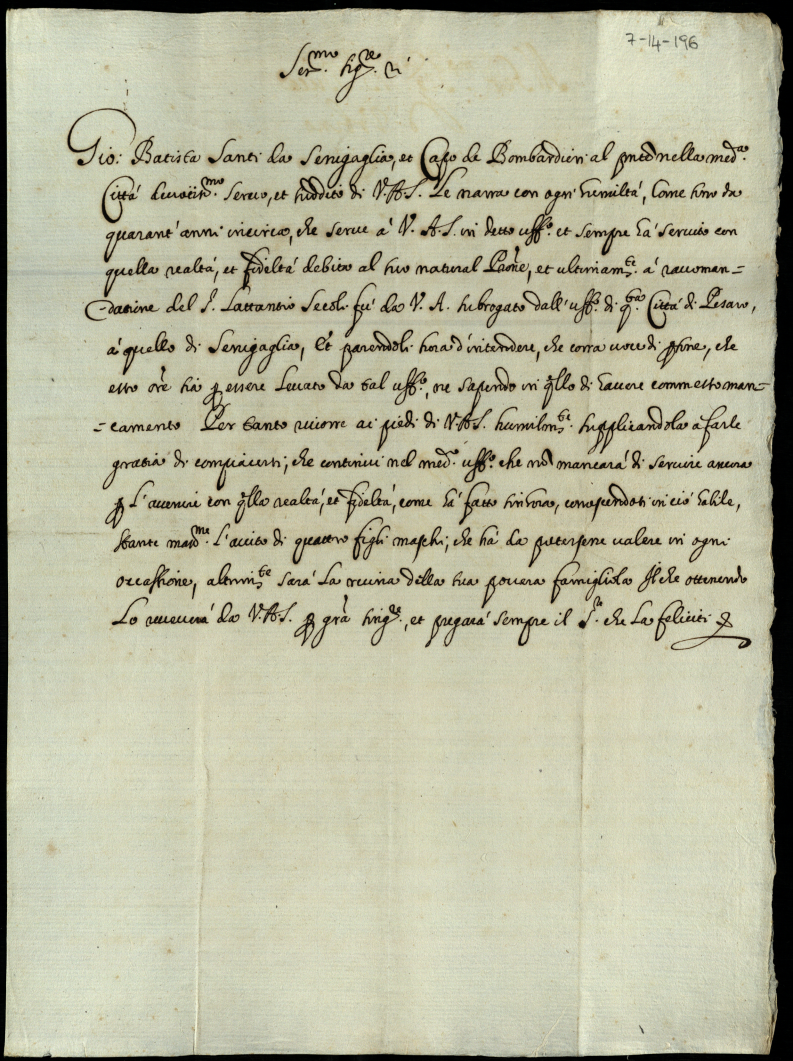 7-14-196
Ser.mo Sig.re
Gio: Batista Santi da Senigaglia, et Capo de Bombardieri al pnte nella med.a
Città devotiss.mo servo, et suddito di V.A.S. Le narra con ogni humiltà, come sino da
quarant'anni incirca, che serve à V.A.S. in detto uff.o et sempre hà servito con
quella realtà, et fideltà debita al suo natural Prone, et ultimam.te à raccoman=
=datione del S.r Lattantio Secoli fù da V.A. subrogato dall'uff.o di q.sta Città di Pesaro,
à quello di Senigaglia, Et parendoli hora d'intendere, che corra voce di psone, che
esso ore hà p essere Levato da tal uff.o, ne sapendo in qllo di havere commesso man=
=camento Per tanto ricorre ai piedi di V.A.S. humilm.te supplicandola à farle
gratia di compiacersi, che continui nel med.o uff.o che nō mancarà di servire ancora
p L'avenire con qlla realtà, et fideltà, come hà fatto sin'hora, conoscendosi in ciò habile,
stante mass.me L'aiuto di quattro figli maschi, che hà da potersene valere in ogni
occassione, altrim.te sarà La ruina della sua povera famigliola Il che ottenendo
Lo riceverà da V.A.S. p grã sing.re, et pregarà sempre il S.re che La feliciti